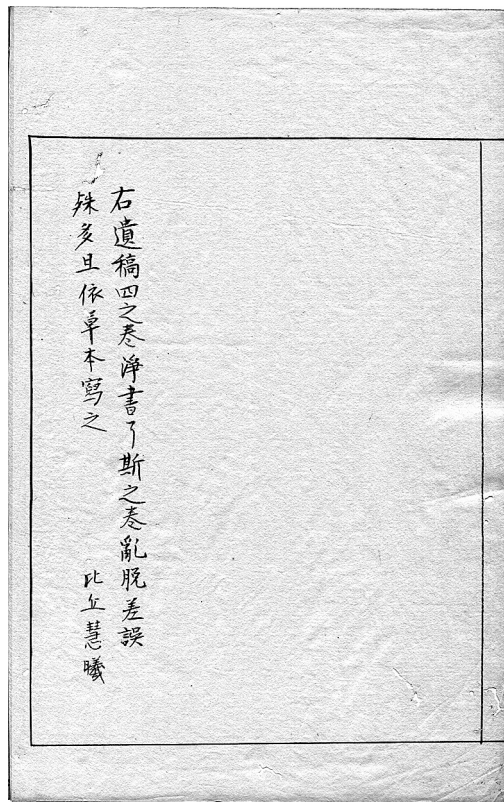 右遺稿四之巻淨書了斯之巻亂脱差誤
殊多且依草本寫之
比丘慧曦